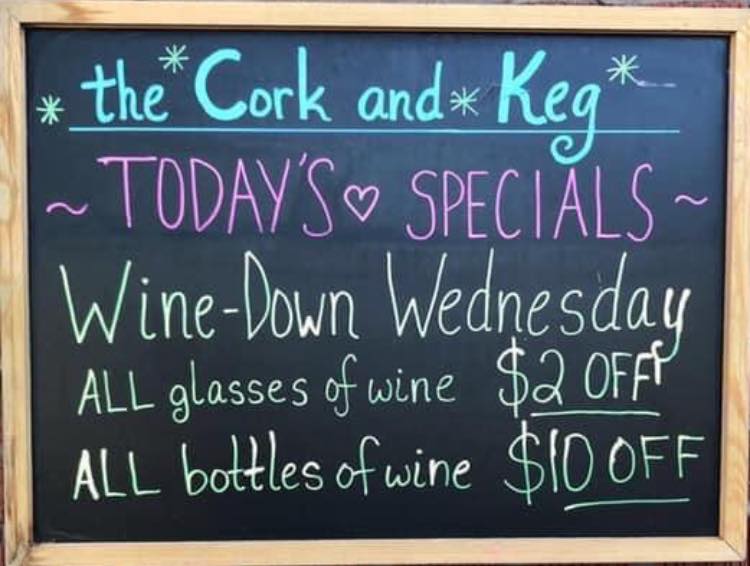 the Cork and Keg
~ TODAY'S ♡ SPECIALS ~
Wine-Down Wednesday
ALL glasses of wine $2 OFF
ALL bottles of wine $10 OFF